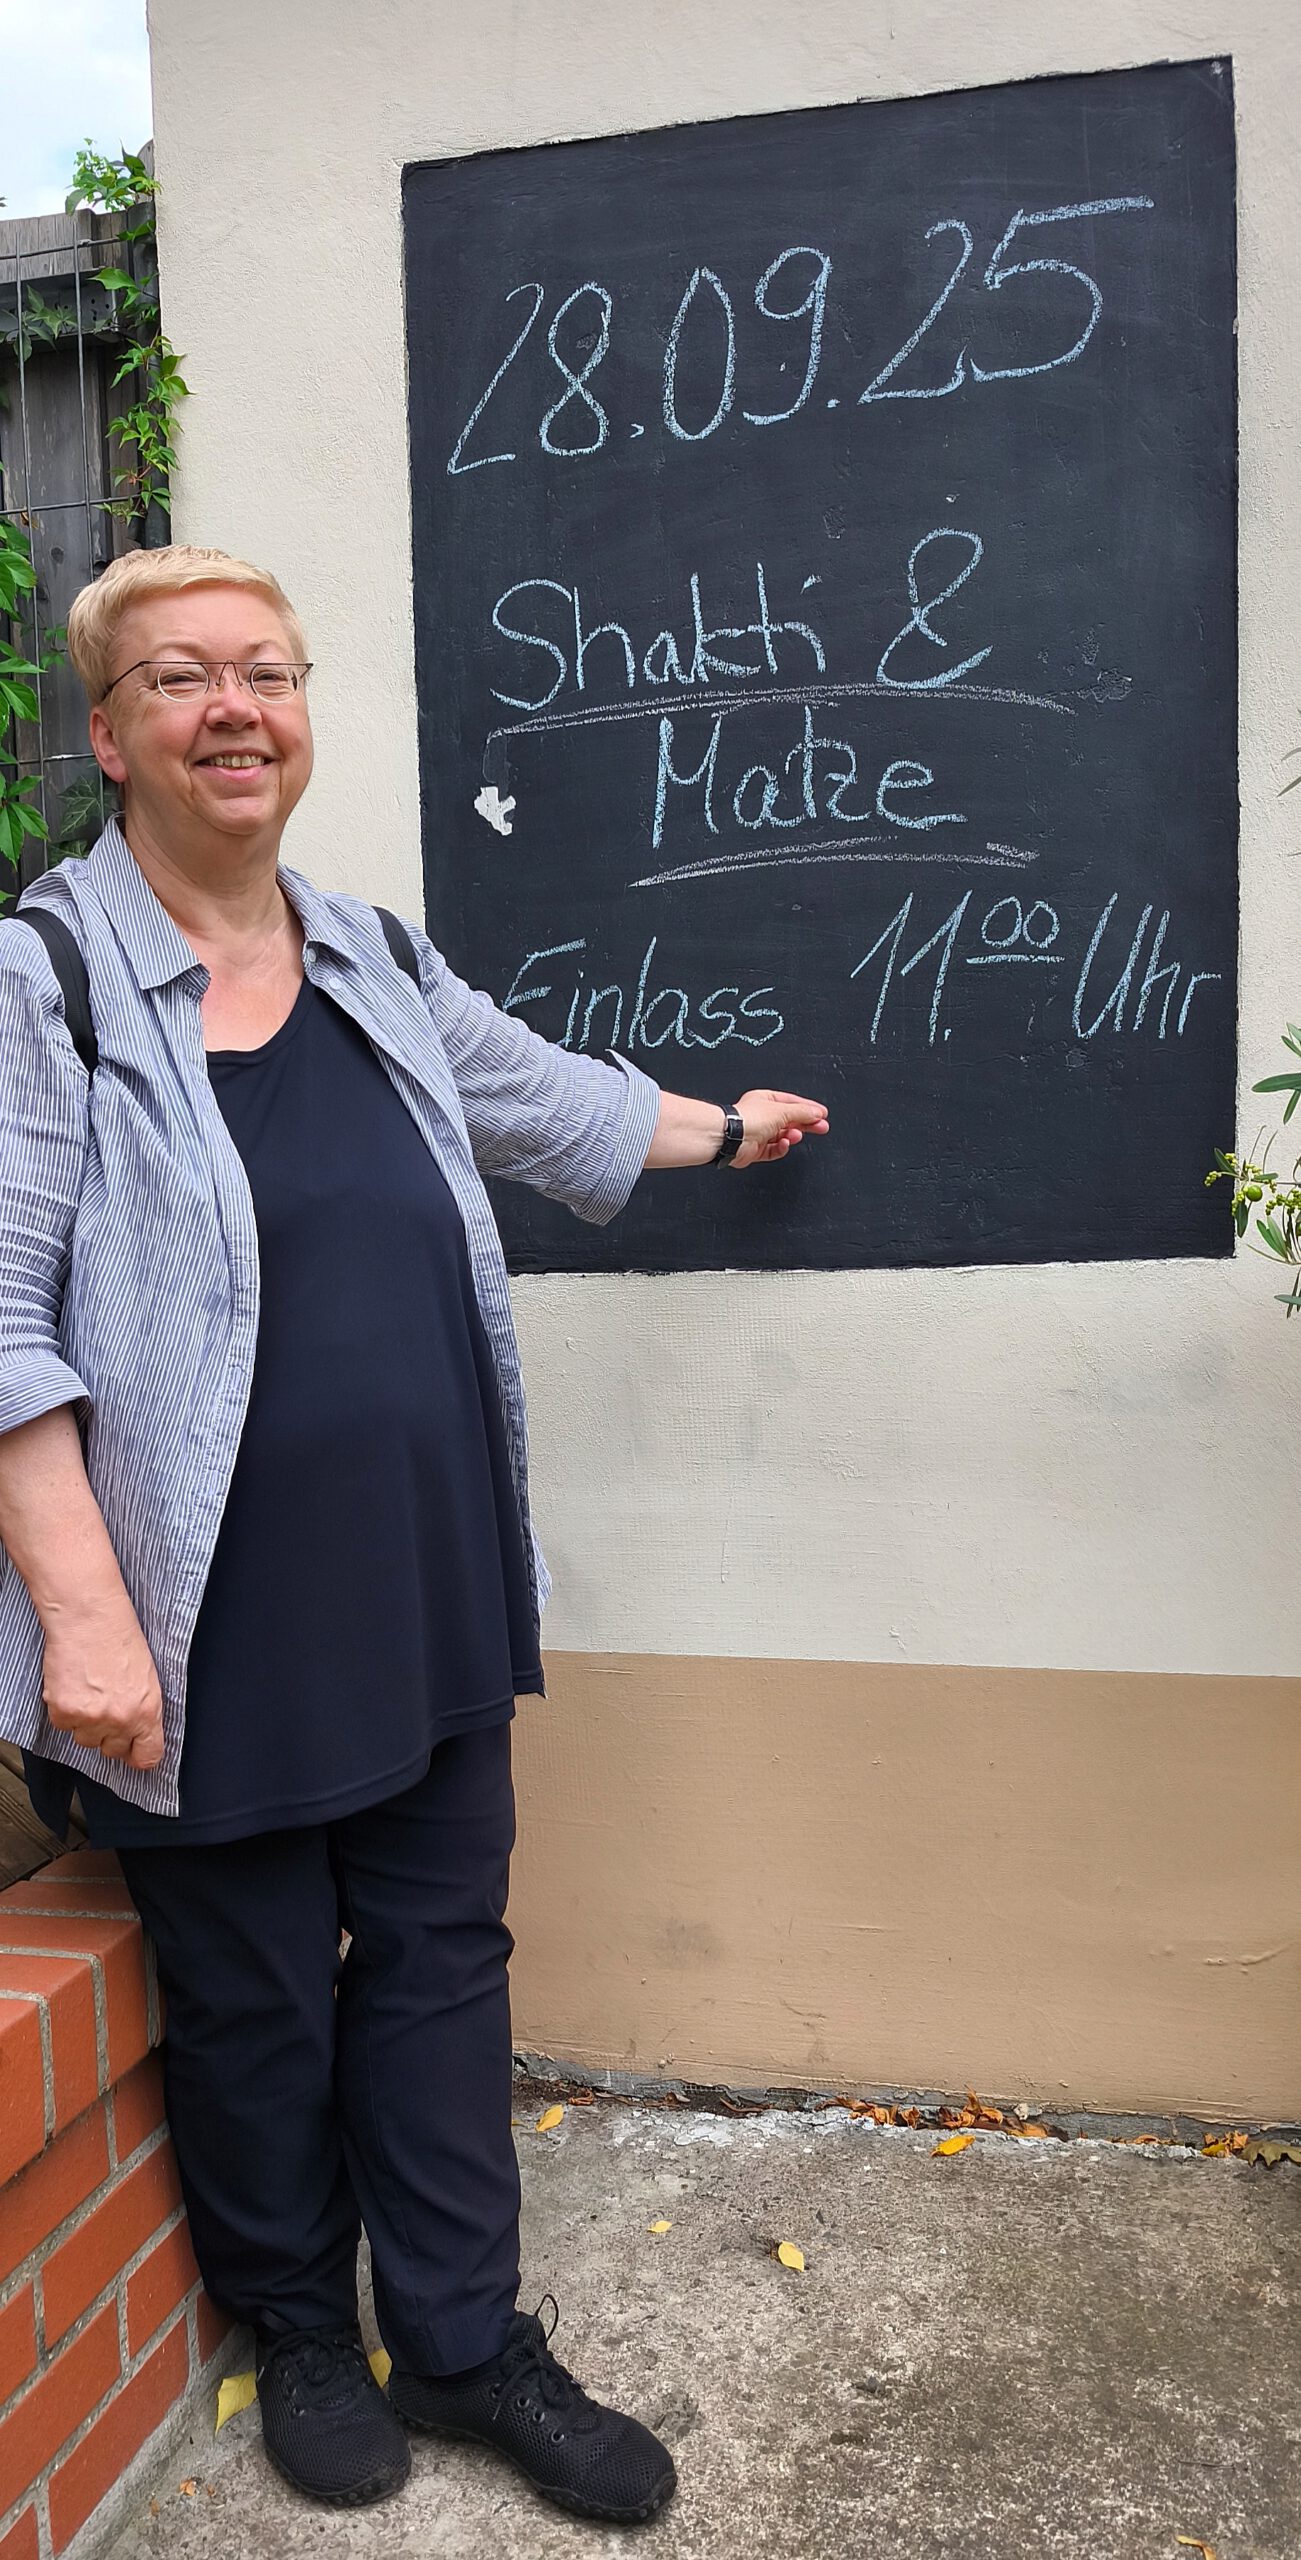 28.09.25
Shakti &
Matze
Einlass 11.00 Uhr